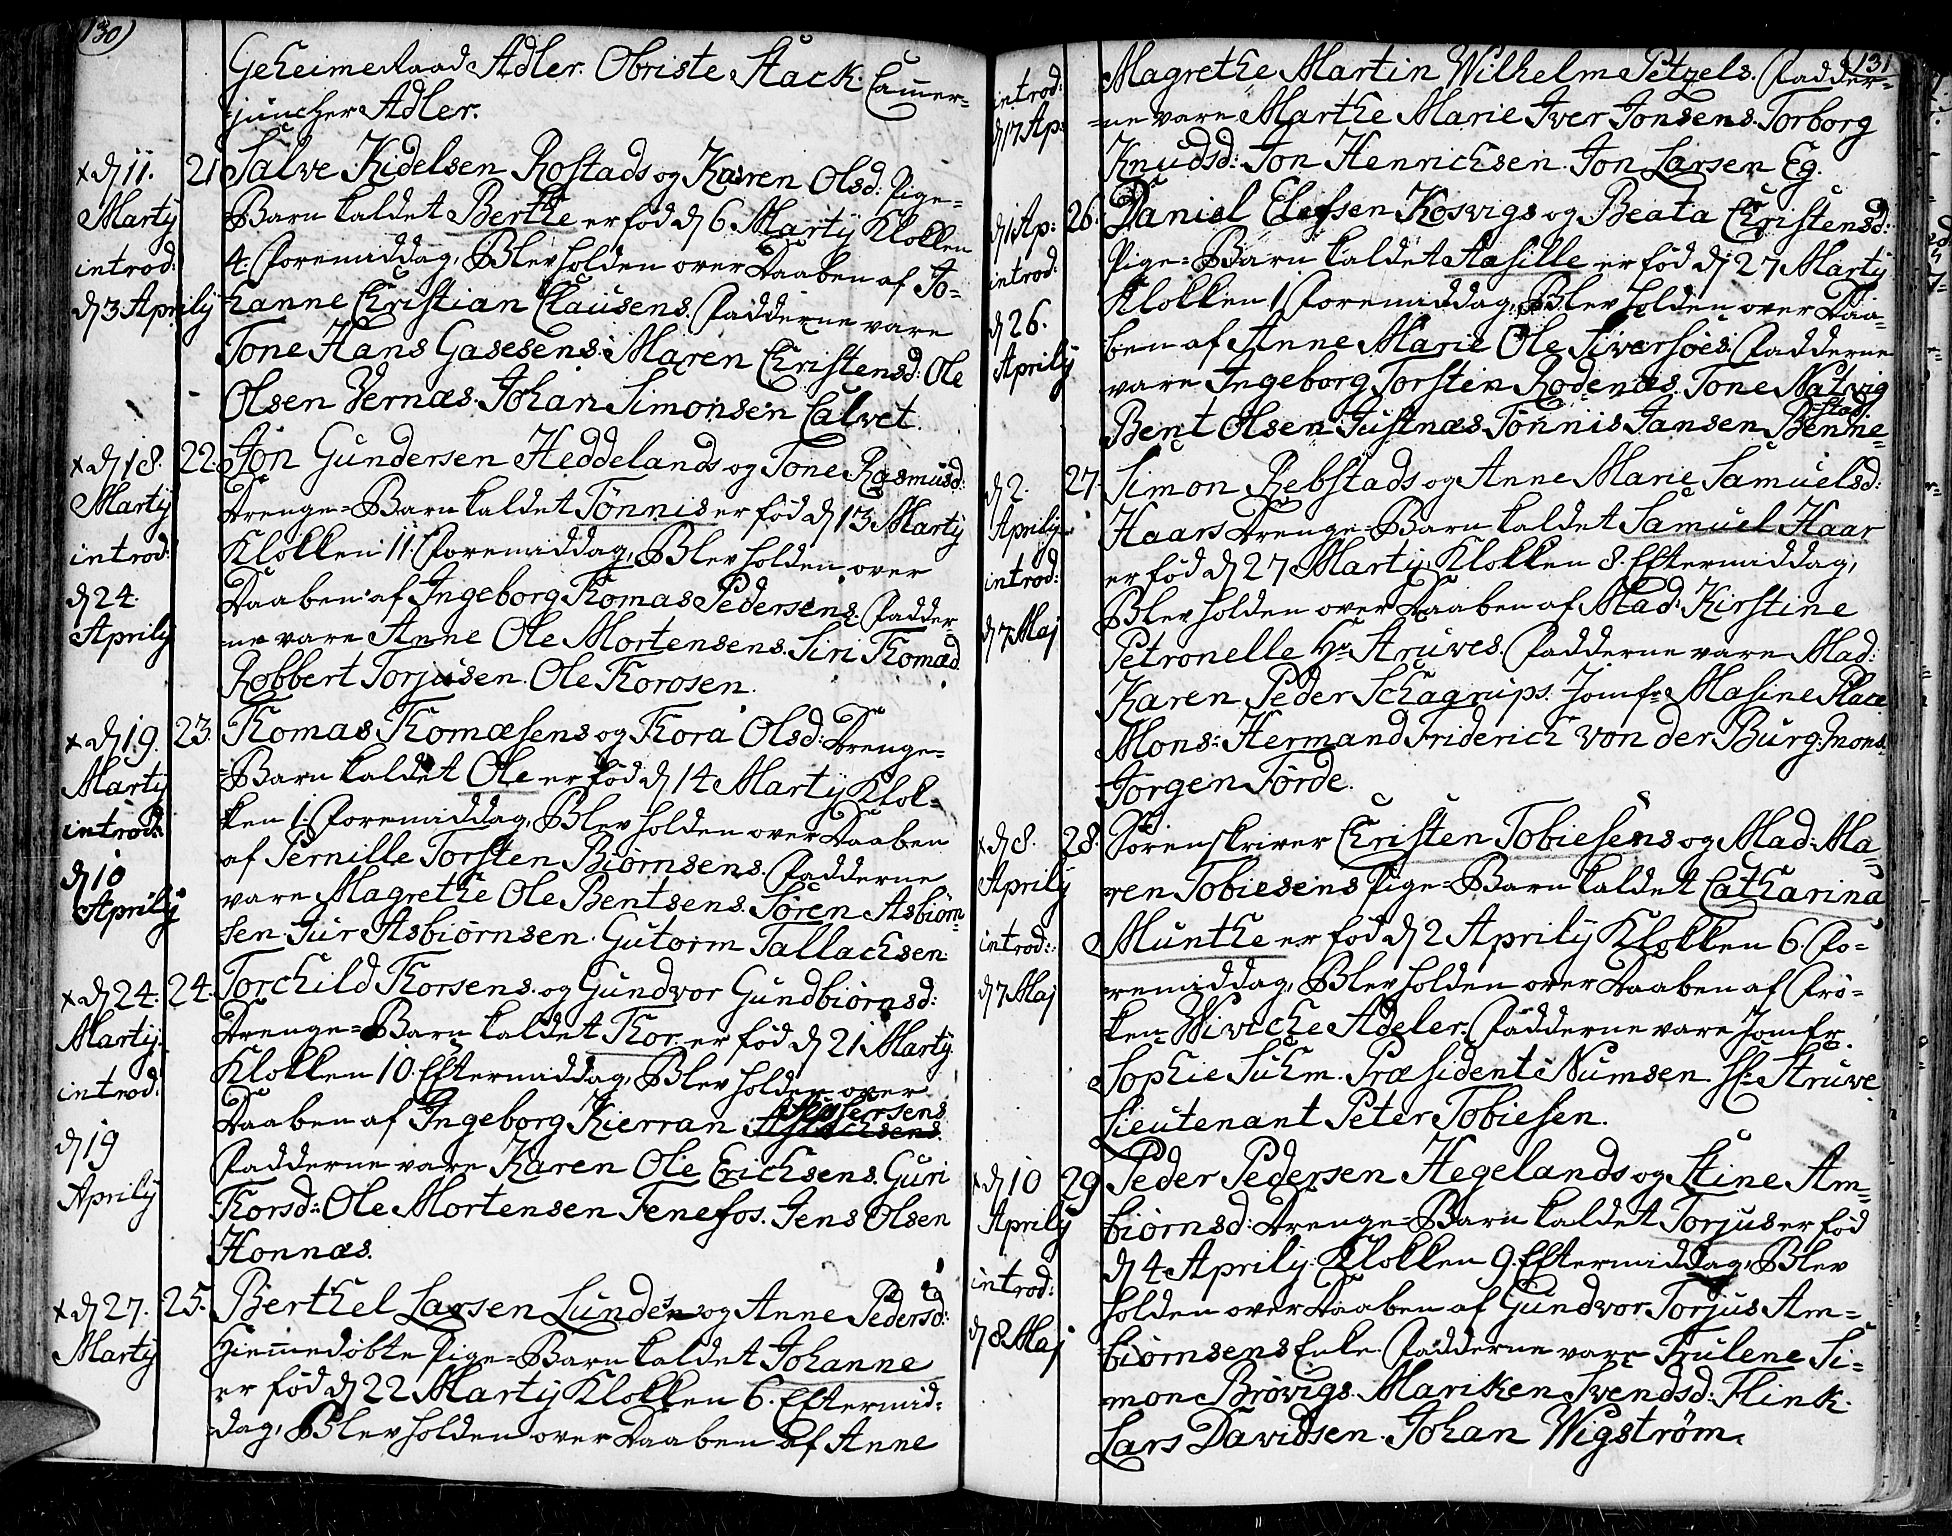 130)
GeheimeRaad Adler. Obriste Stack. Camer=
=juncher Adler.
x d 11. Marty introd: d 3 Aprily
21 Salve Kidelsen Rostads og Karen Olsd: Pige=
Barn kaldet Berthe er fød d 6 Marty Klokken
4. Foremiddag, Blev holden over Daaben af Jo=
hanne Christian Clausens. Fadderne vare
Tone Hans Gasesens. Maren Christensd: Ole
Olsen Vernæs. Johan Simonsen Calvet.
x d 18. Marty introd: d 24. Aprily
22. Jon Gundersen Heddelands og Tone Rasmusd:
Drenge=Barn kaldet Tønnis er fød d 13 Marty
Klokken 11. Foremiddag, Blev holden over
Daaben af Ingeborg Thomas Pedersens. Fadder=
=ne vare Anne Ole Mortensens. Siri Thomæd
Robbert Torjusen. Ole Thorosen.
x d 19. Marty introd: d 10 Aprily
23. Thomas Thomæsens og Thora Olsd: Drenge=
=Barn kaldet Ole er fød d 14 Marty Klok=
ken 1. Foremiddag, Blev holden over Daaben
af Pernille Torsten Biørnsens. Fadderne
vare Magrethe Ole Bentsens. Søren Asbiørn=
sen. Siur Asbiørnsen. Gutorm Tallachsen.
x d 24. Marty. introd: d 19 Aprily
24. Torchild Thorsens. og Gundvor Gundbiørnsd:
Drenge=Barn kaldet Thor. er fød d 21 Marty.
Klokken 10. Eftermiddag, Blev holden over
Daaben af Ingeborg Kierran
Fadderne vare Karen Ole Erichsens. Guri
Thorsd: Ole Mortensen Fenefos. Jens Olsen
Honnæs.
x d 27. Marty
25. Berthel Larsen Lundes og Anne Pedersd:
Hiemmedøbte Pige=Barn kaldet Johanne
er fød d 22 Marty Klokken 6. Eftermid=
dag, Blev holden over Daaben af Anne
131
introd: d 17 Ap:
Magrethe Martin Wilhelm Petzels. Fadder=
=ne vare Marthe Marie Iver Jonsens. Torborg
Knudsd: Jon Henrichsen. Jon Larsen Eg.
d 1 Ap: introd: d 26. Aprily
26. Daniel Elefsen Kosvigs og Beata Christensd:
Pige=Barn kaldet Aasille er fød d 27 Marty
Klokken 1 Foremiddag, Blev holden over Daa=
ben af Anne Marie Ole Siversøes. Fadderne
vare Ingeborg Torsten Rodenæs. Tone Natvig
Bent Olsen Justnæs. Tønnis Jansen Benne=
=stad.
d 2. Aprily introd: d 7 Maj
27. Simon Rebstads og Anne Marie Samuelsd:
Haars Drenge=Barn kaldet Samuel Haar
er fød d 27 Marty Klokken 8. Eftermiddag,
Blev holden over Daaben af Mad: Kirstine
Petronelle Hr Struves. Fadderne vare Mad:
Karen Peder Schagrups. Jomfr Masine Place
Mons: Hermand Friderich von der Burg. Mons.
Jorgen Førde.
x d 8. Aprily introd: d 7 Maj
28. Sorenskriver Christen Tobiesens og Mad: Ma=
ren Tobiesens Pige=Barn kaldet Catharina
Munthe er fød d 2 Aprily Klokken 6. Fo=
remiddag, Blev holden over Daaben af Frø=
ken Wivicke Adeler. Fadderne vare Jomfr.
Sophie Suhm. Præsident Numsen. Hr Struve.
Lieutenant Peter Tobiesen.
x d 10 Aprily introd: d 8 Maj
29 Peder Pedersen Hegelands og Stine Am=
biørnsd: Drenge=Barn kaldet Torjus er fød
d 4 Aprily. Klokken 9. Eftermiddag, Blev
holden over Daaben af Gundvor Torjus Am=
biørnsens Enke. Fadderne vare Trulene Si=
mon Brøvigs. Mariken Svendsd: Flink.
Lars Davidsen. Johan Wigstrøm.